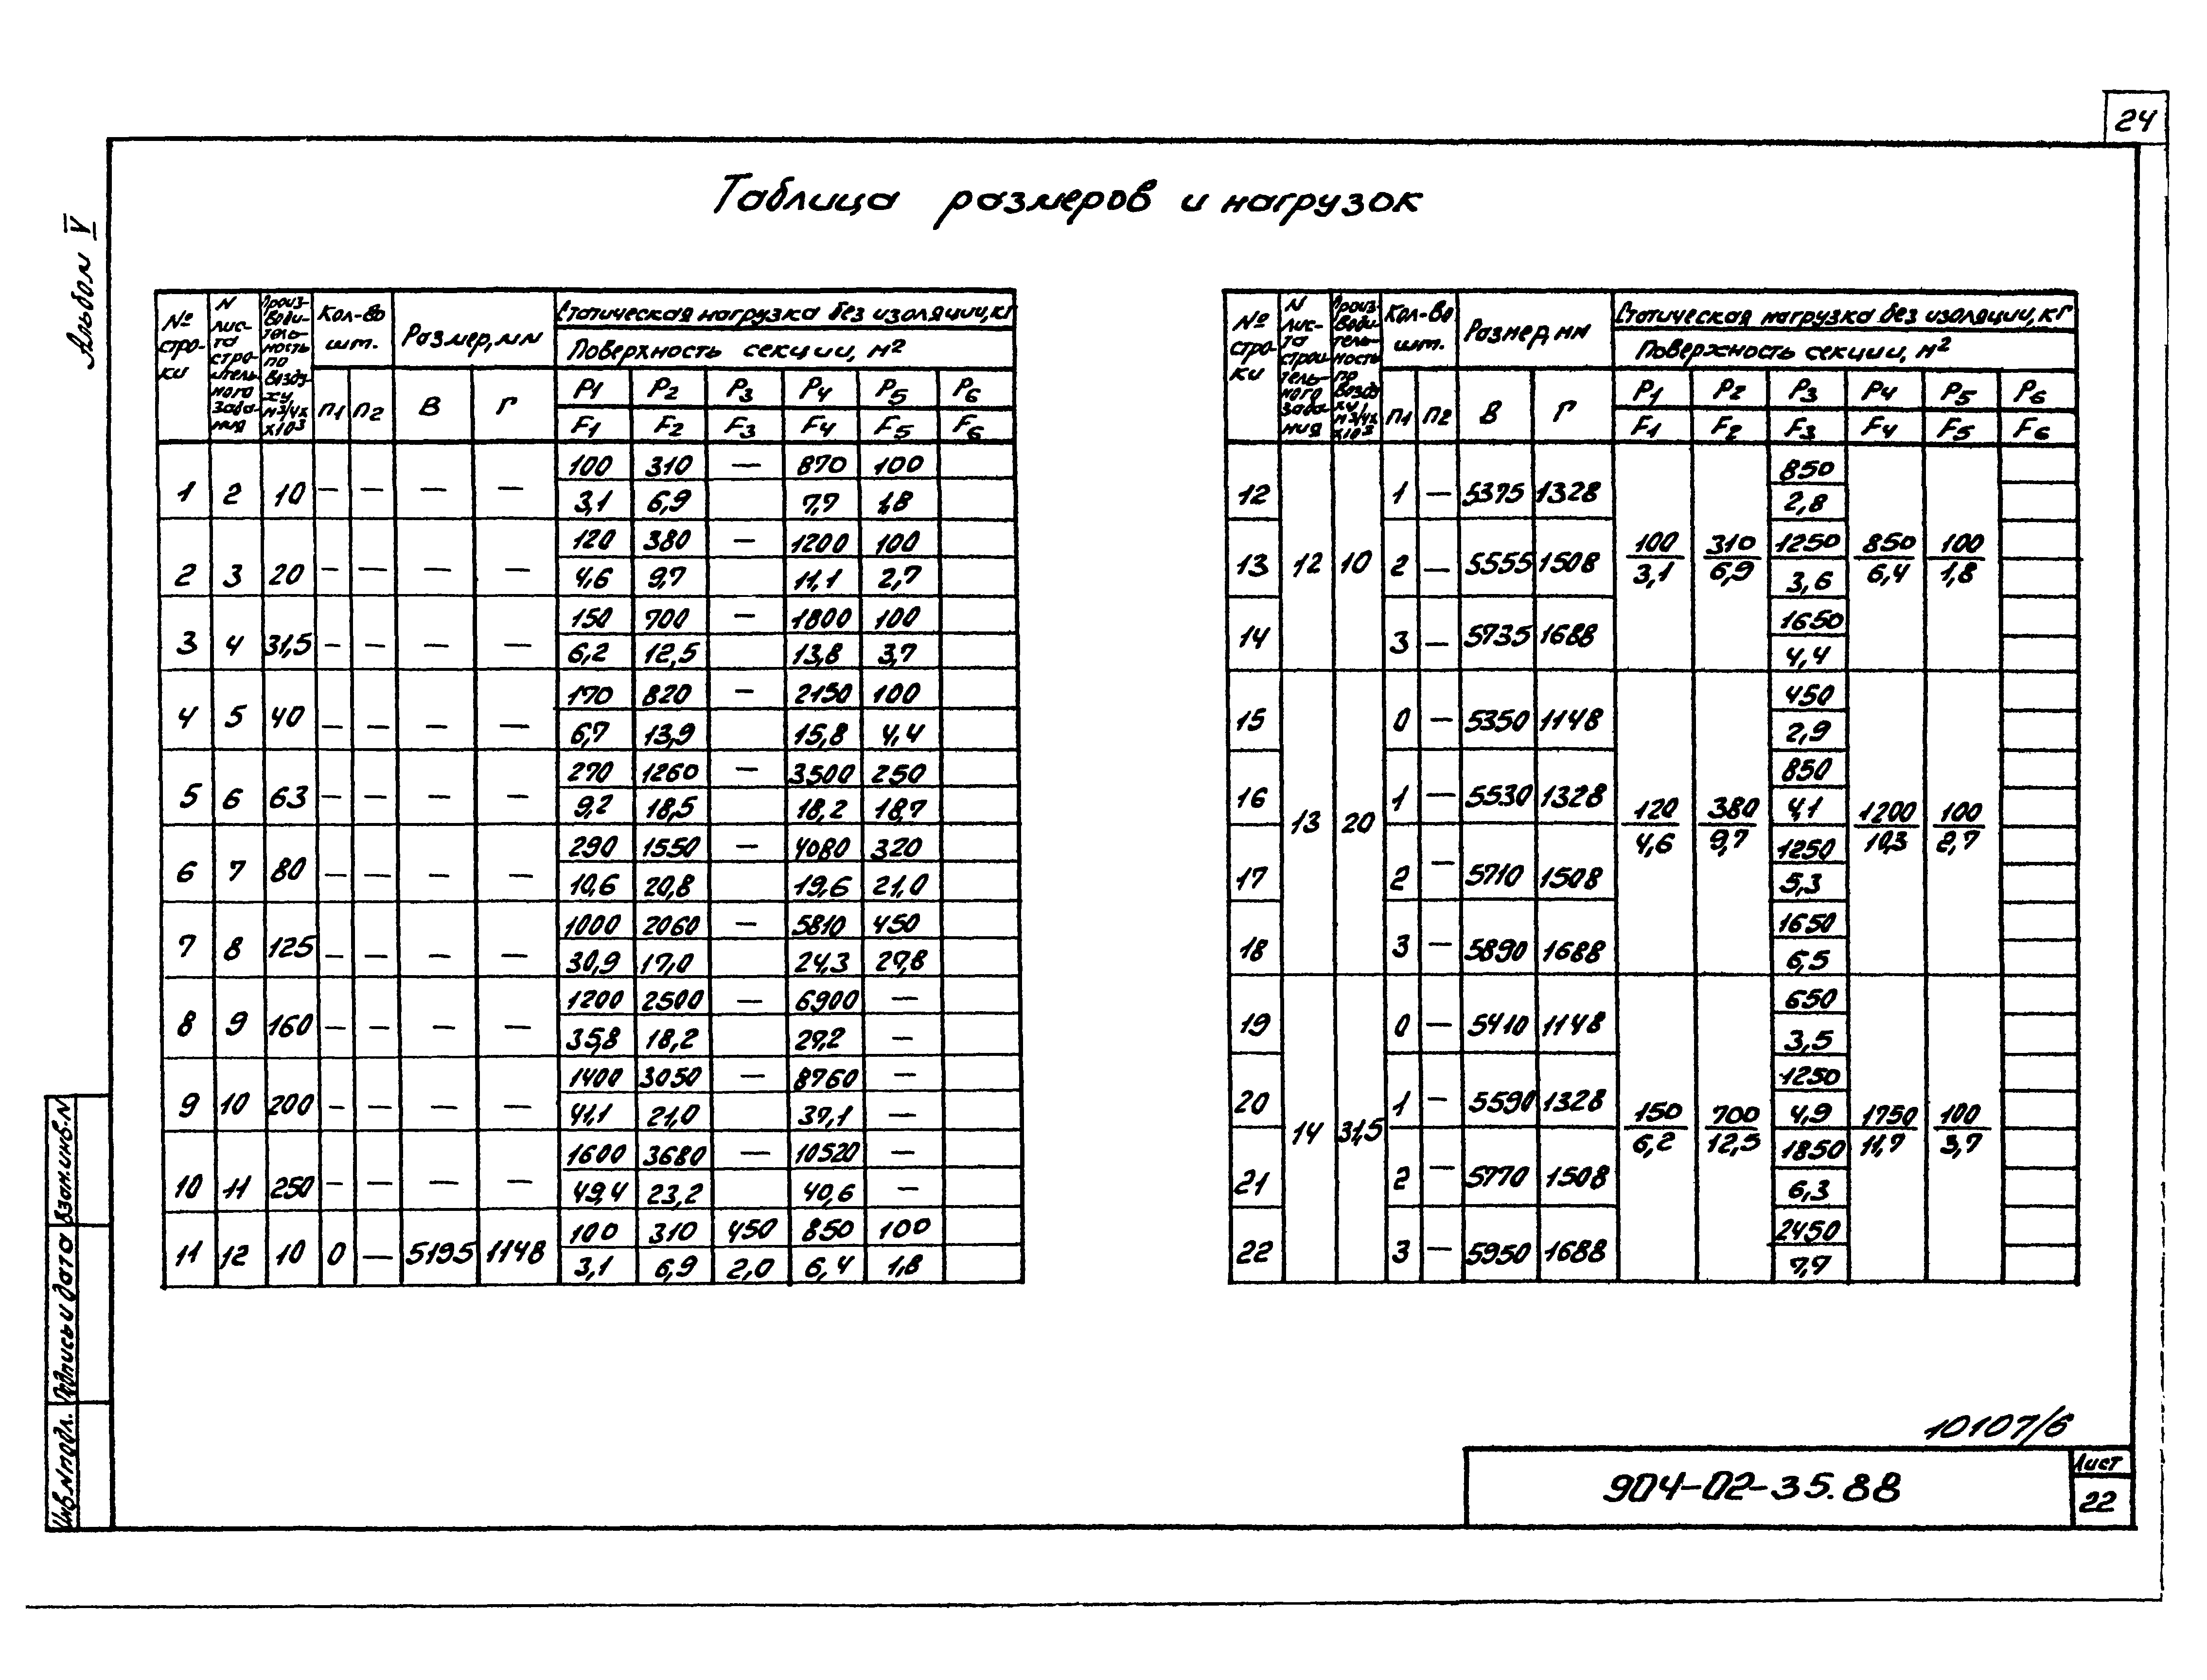 24
Альбом V
Таблица размеров и нагрузок
№ стро-ки | N лис-та строи-тель-ного зада-ния | Произ-води-тель-ность по возду-ху, м3/ч х х10³ | Кол-во шт. | Размер, мм | Статическая нагрузка без изоляции, кг
Поверхность секции, м²
п1 | п2 | В | Г | P1 | P2 | P3 | P4 | P5 | P6
F1 | F2 | F3 | F4 | F5 | F6
1 | 2 | 10 | — | — | — | — | 100 | 310 | — | 870 | 100
3,1 | 6,9 | 7,7 | 1,8
2 | 3 | 20 | — | — | — | — | 120 | 380 | — | 1200 | 100
4,6 | 9,7 | 11,1 | 2,7
3 | 4 | 31,5 | — | — | — | — | 150 | 700 | — | 1800 | 100
6,2 | 12,5 | 13,8 | 3,7
4 | 5 | 40 | — | — | — | — | 170 | 820 | — | 2150 | 100
6,7 | 13,9 | 15,8 | 4,4
5 | 6 | 63 | — | — | — | — | 270 | 1260 | — | 3500 | 250
9,2 | 18,5 | 18,2 | 18,7
6 | 7 | 80 | — | — | — | — | 290 | 1550 | — | 4080 | 320
10,6 | 20,8 | 19,6 | 21,0
7 | 8 | 125 | — | — | — | — | 1000 | 2060 | — | 5810 | 450
30,9 | 17,0 | 24,3 | 27,8
8 | 9 | 160 | — | — | — | — | 1200 | 2500 | — | 6900 | —
35,8 | 18,2 | 29,2 | —
9 | 10 | 200 | — | — | — | — | 1400 | 3050 | — | 8760 | —
41,1 | 21,0 | 37,1 | —
10 | 11 | 250 | — | — | — | — | 1600 | 3680 | — | 10520 | —
49,4 | 23,2 | 40,6 | —
11 | 12 | 10 | 0 | — | 5195 | 1148 | 100 | 310 | 450 | 850 | 100
3,1 | 6,9 | 2,0 | 6,4 | 1,8
№ стро-ки | N лис-та строи-тель-ного зада-ния | Произ-води-тель-ность по возду-ху, м3/ч х х10³ | Кол-во шт. | Размер, мм | Статическая нагрузка без изоляции, кг
Поверхность секции, м²
п1 | п2 | В | Г | P1 | P2 | P3 | P4 | P5 | P6
F1 | F2 | F3 | F4 | F5 | F6
12 | 1 | — | 5375 | 1328 | 850
2,8
13 | 12 | 10 | 2 | — | 5555 | 1508 | 100 | 310 | 1250 | 850 | 100
3,1 | 6,9 | 3,6 | 6,4 | 1,8
14 | 3 | — | 5735 | 1688 | 1650
4,4
15 | 0 | — | 5350 | 1148 | 450
2,9
16 | 1 | — | 5530 | 1328 | 850
13 | 20 | 120 | 380 | 4,1 | 1200 | 100
4,6 | 9,7 | 1250 | 10,3 | 2,7
17 | 2 | — | 5710 | 1508 | 5,3
18 | 3 | — | 5890 | 1688 | 1650
6,5
19 | 0 | — | 5410 | 1148 | 650
3,5
20 | 1 | — | 5590 | 1328 | 1250
14 | 31,5 | 150 | 700 | 4,9 | 1750 | 100
6,2 | 12,5 | 1850 | 11,7 | 3,7
21 | 2 | — | 5770 | 1508 | 6,3
22 | 3 | — | 5950 | 1688 | 2450
7,7
Взам.инв.N
Подпись и дата
Инв.Nподл.
10107/6
904-02-35.88
Лист
22